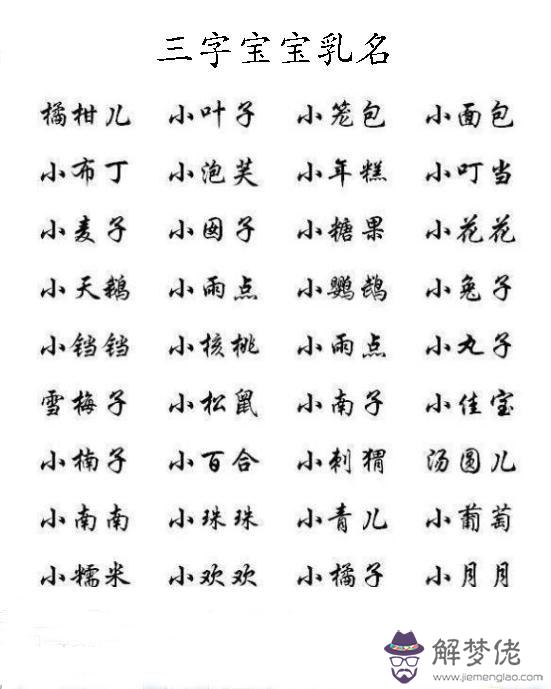 三字宝宝乳名
橘柑儿 小叶子 小笼包 小面包
小布丁 小泡芙 小年糕 小叮当
小麦子 小囡子 小糖果 小花花
小天鹅 小雨点 小鹦鹉 小兔子
小铛铛 小核桃 小雨点 小丸子
雪梅子 小松鼠 小南子 小佳宝
小楠子 小百合 小刺猬 汤圆儿
小南南 小珠珠 小青儿 小葡萄
小糯米 小欢欢 小橘子 小月月
解梦佬
www.jiemenglao.com